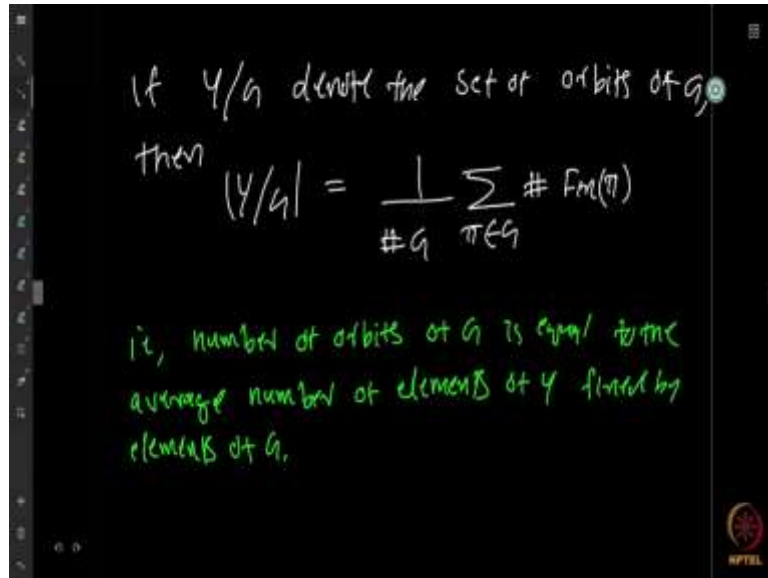 If Y/G denote the set of orbits of G,
then |Y/G| = 1/#G Σ_{π∈G} # Fix(π)
ie, number of orbits of G is equal to the
average number of elements of Y fixed by
elements of G.
NPTEL